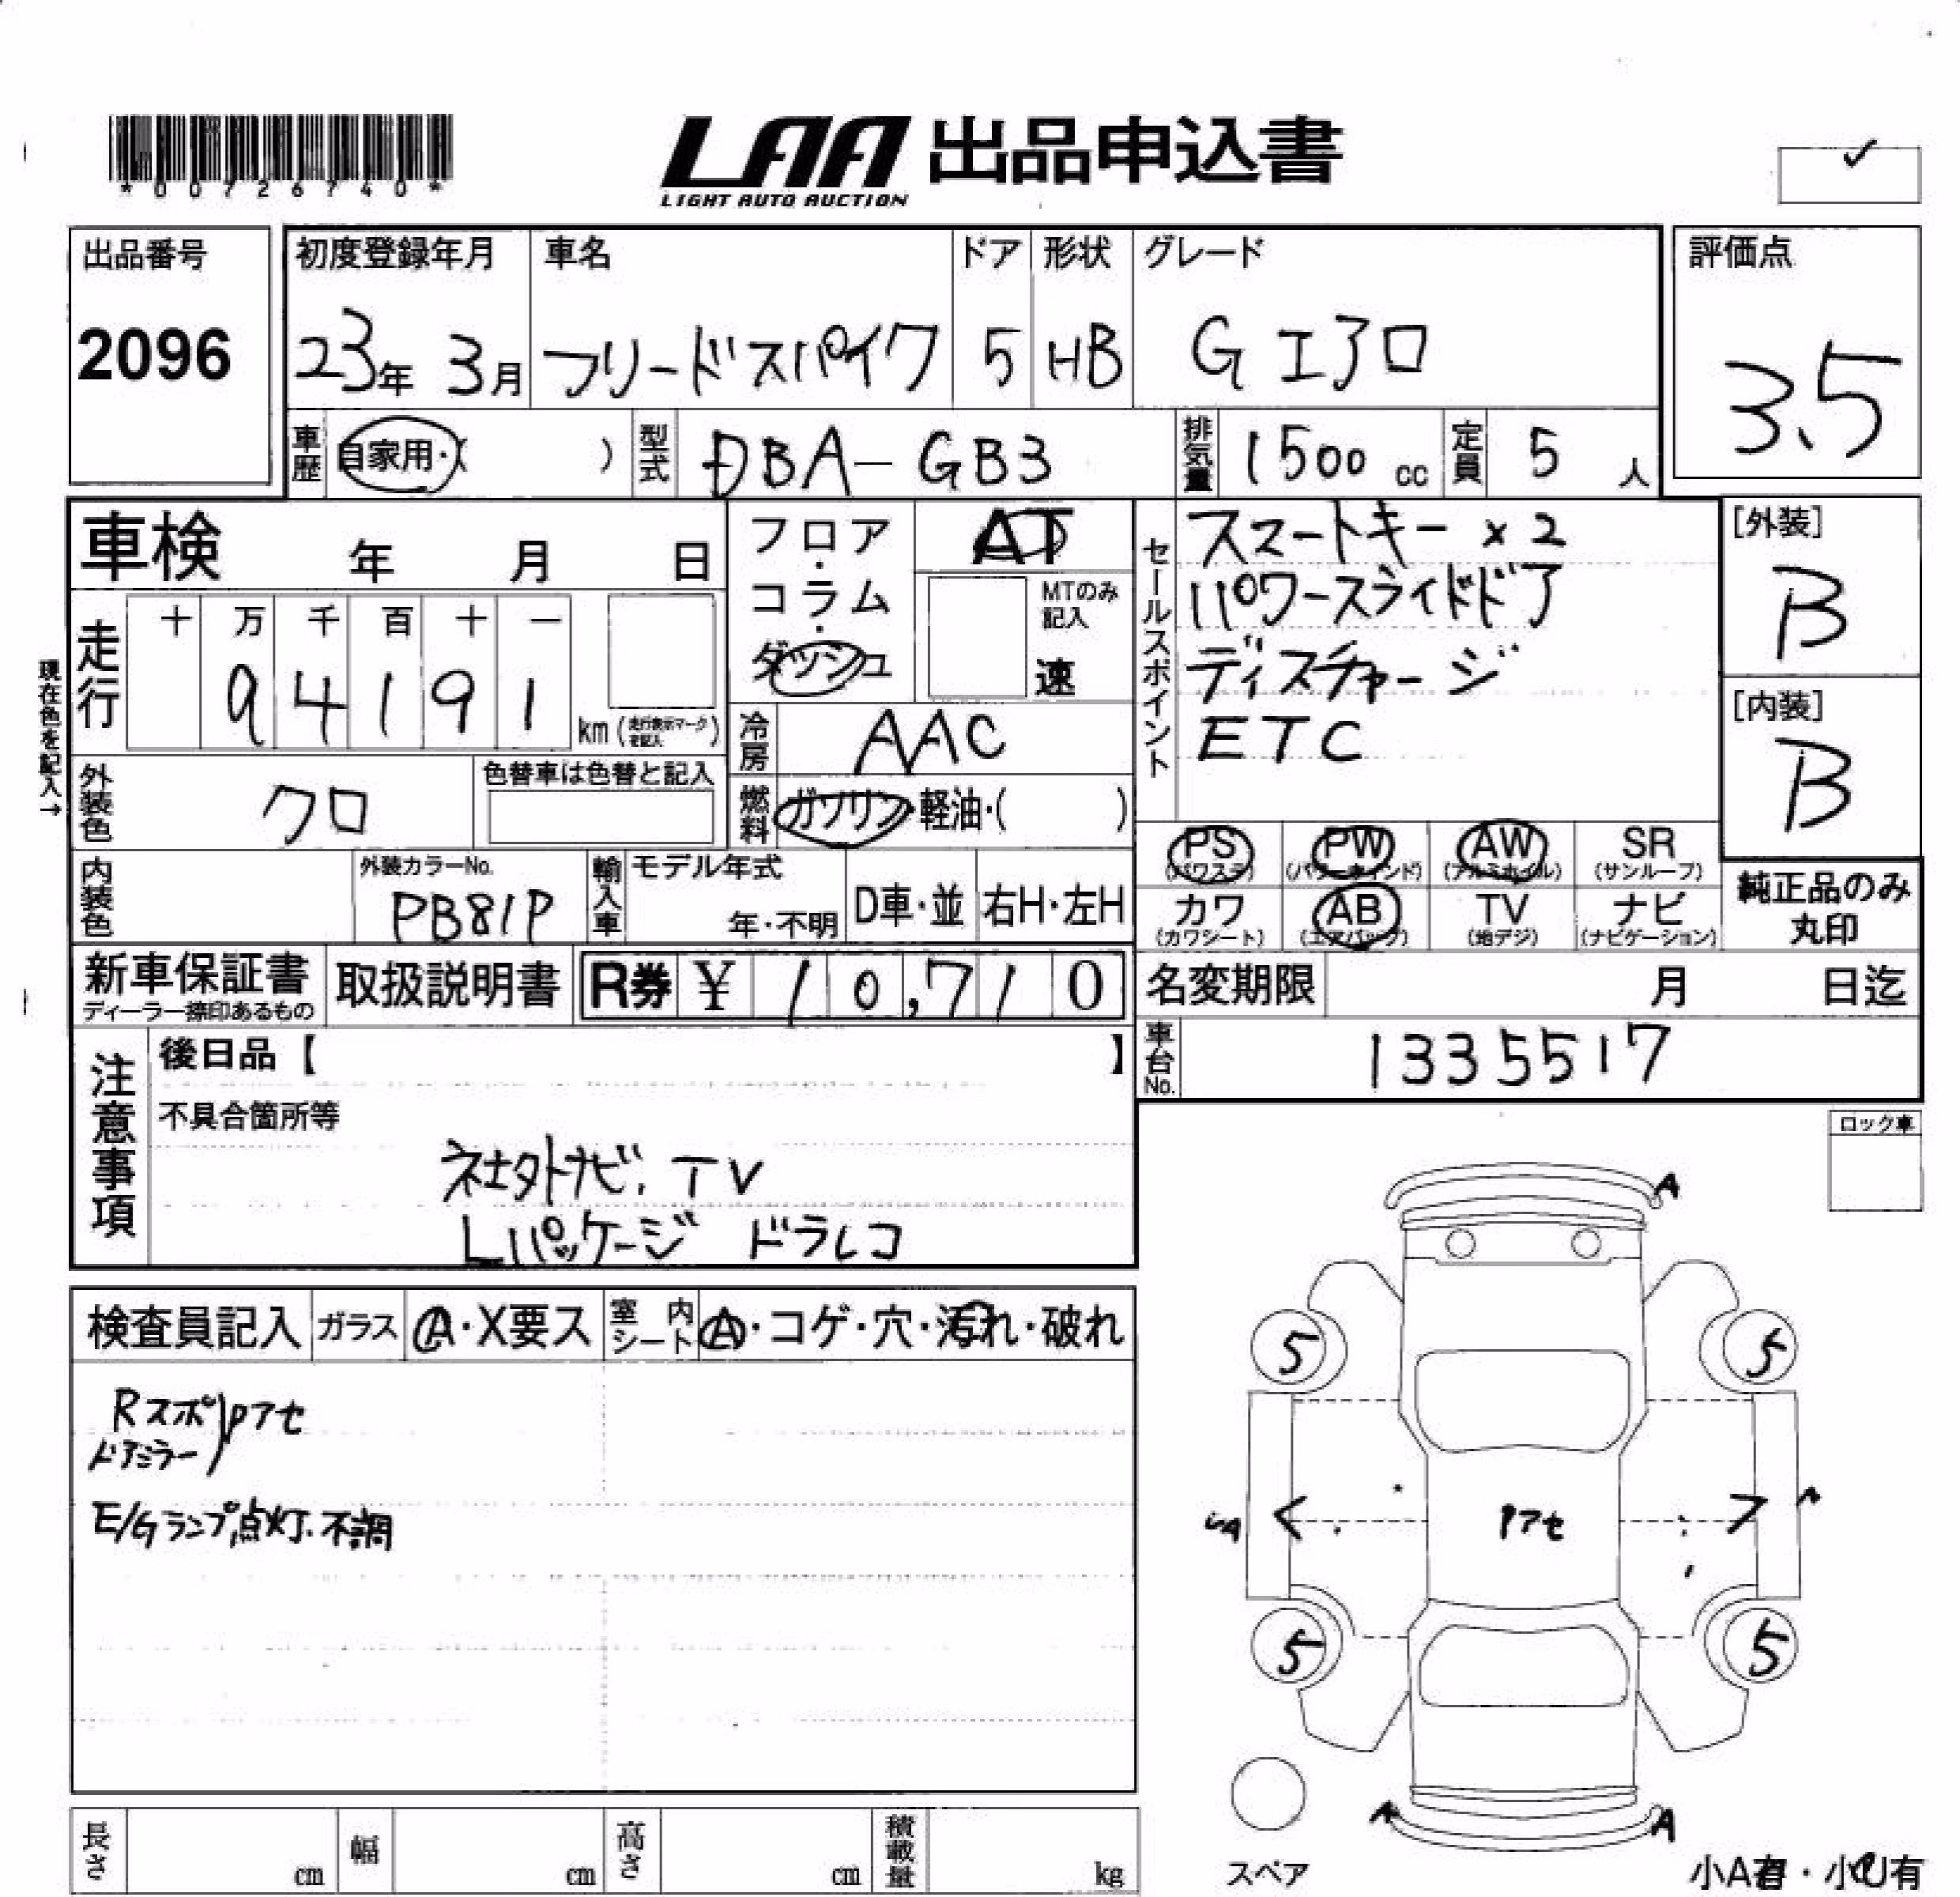 *00726740*
LAA 出品申込書
LIGHT AUTO AUCTION
出品番号
2096
初度登録年月
23年 3月
車名
フリードスパイク
ドア
5
形状
HB
グレード
G エアロ
評価点
3.5
車歴 自家用・( )
型式 DBA-GB3
排気量 1500 cc
定員 5 人
車検 年 月 日
フロア・コラム・ダッシュ
AT
MTのみ記入
速
セールスポイント
スマートキー x2
パワースライドドア
ディスチャージ
ETC
[外装]
B
[内装]
B
現在色を記入→
走行
十 万 千 百 十 一
9 4 1 9 1
km (走行表示マークを記入)
冷房 AAC
外装色 クロ
色替車は色替と記入
燃料 ガソリン・軽油・( )
PS (パワステ)
PW (パワーウィンド)
AW (アルミホイル)
SR (サンルーフ)
カワ (カワシート)
AB (エアバック)
TV (地デジ)
ナビ (ナビゲーション)
純正品のみ丸印
内装色
外装カラーNo.
PB81P
輸入車
モデル年式
年・不明
D車・並
右H・左H
新車保証書
ディーラー捺印あるもの
取扱説明書
R券 ¥ 10,710
名変期限 月 日迄
車台No. 1335517
注意事項
後日品【 】
不具合箇所等
ネ士外ナビ. TV
Lパッケージ ドラレコ
ロック車
検査員記入
ガラス A・X要ス
室内シート A・コゲ・穴・汚れ・破れ
Rスポ
ドアミラー
アセ
E/Gランプ点灯.不調
A
5 5
A < アセ > A
5 5
A A
スペア
小A有・小U有
長さ cm
幅 cm
高さ cm
積載量 kg